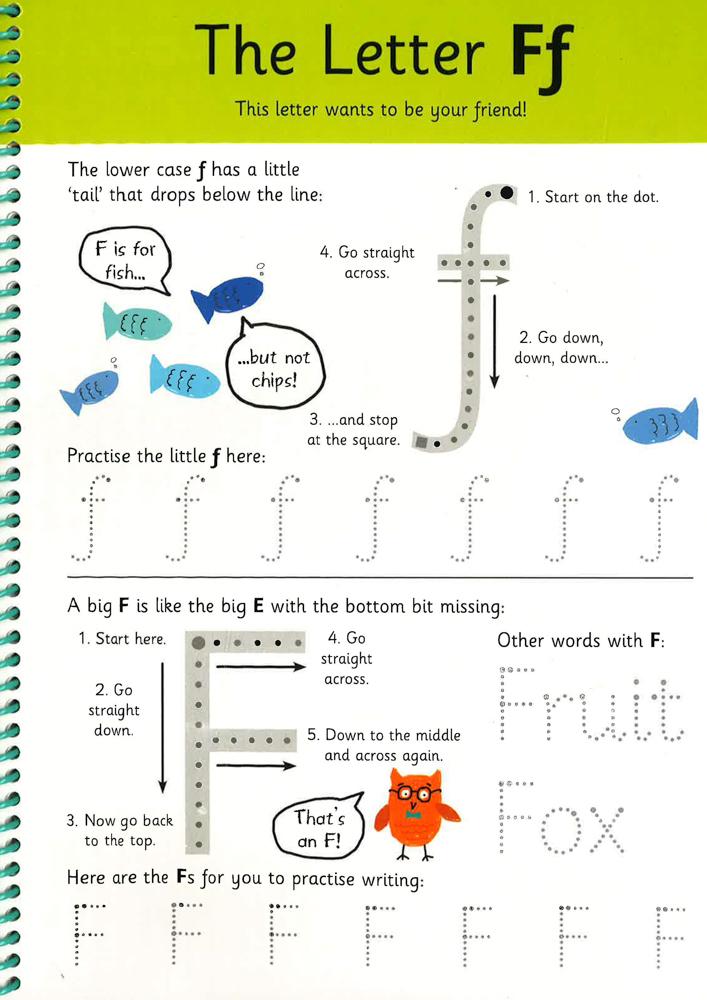 The Letter Ff
This letter wants to be your friend!
The lower case f has a little
‘tail’ that drops below the line:
F is for
fish...
...but not
chips!
1. Start on the dot.
4. Go straight
across.
2. Go down,
down, down...
3. ...and stop
at the square.
Practise the little f here:
f f f f f f f
A big F is like the big E with the bottom bit missing:
1. Start here.
2. Go
straight
down.
3. Now go back
to the top.
4. Go
straight
across.
5. Down to the middle
and across again.
That's
an F!
Other words with F:
Fruit
Fox
Here are the Fs for you to practise writing:
F F F F F F F